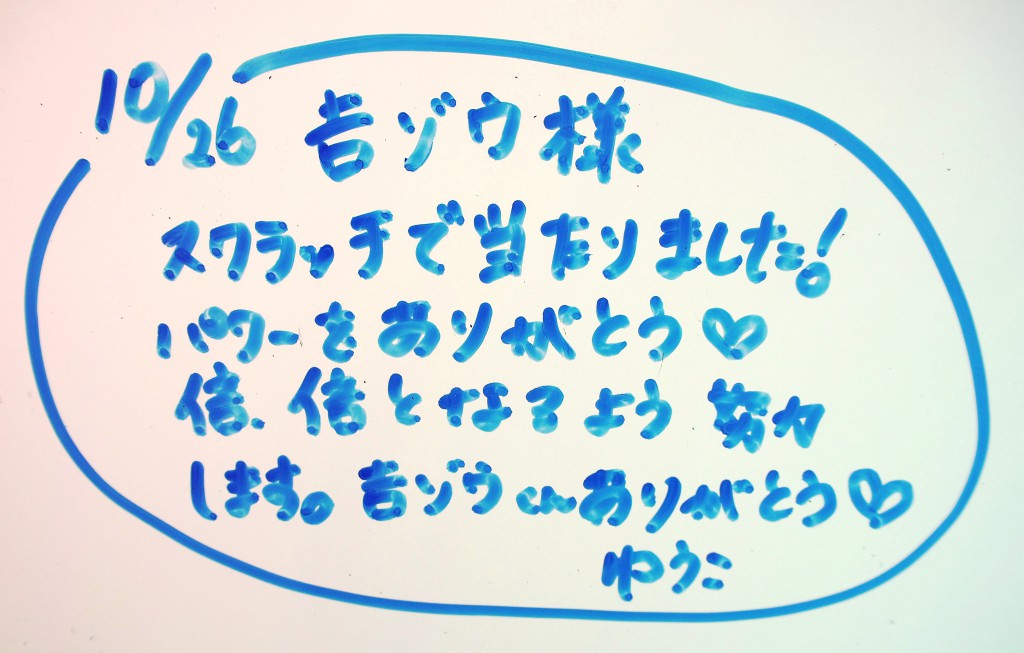 10/26 吉ゾウ様
スクラッチで当たりました!
パワーをありがとう♡
倍、倍となるよう努力
します。吉ゾウくんありがとう♡
ゆうこ